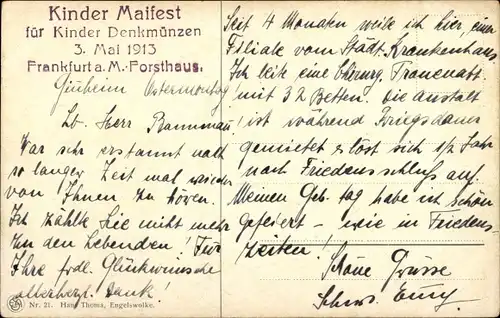 Kinder Maifest
für Kinder Denkmünzen
3. Mai 1913
Frankfurt a. M.-Forsthaus.
Ostermontag
Lb. Herr
War sehr erstaunt nach
so langer Zeit mal wieder
von Ihnen zu hören.
Ich zählte Sie nicht mehr
zu den Lebenden! Für
Ihre frdl. Glückwünsche
allerherzl. Dank!
Seit 4 Monaten weile ich hier, einer
Filiale vom Städt. Krankenhaus
Ich leite eine Chirurg. Frauenabt.
mit 32 Betten. Die Anstalt
ist während Kriegsdauer
gemietet er löst sich ½ Jahr
nach Friedensschluß auf.
Meinen Geb. tag habe ich schön
gefeiert – wie in Friedens-
zeiten!
Schöne Grüsse
Schws. Emy.
Nr. 21. Hans Thoma, Engelswolke.